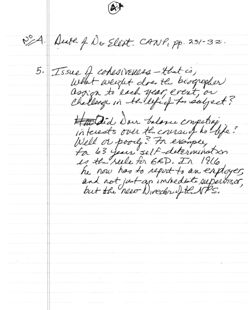 A
4. Death of Dr. Eliot. CANP, pp. 231-32.
5. Issue of cohesiveness — that is,
what weight does the biographer
assign to each year, event, or
challenge in the life of the subject?
did Dorr balance competing
interests over the course of his life?
Well or poorly? For example,
for 63 years self-determination
is the rule for GBD. In 1916
he now has to report to an employer,
and not just an immediate supervisor,
but the new Director of the NPS.